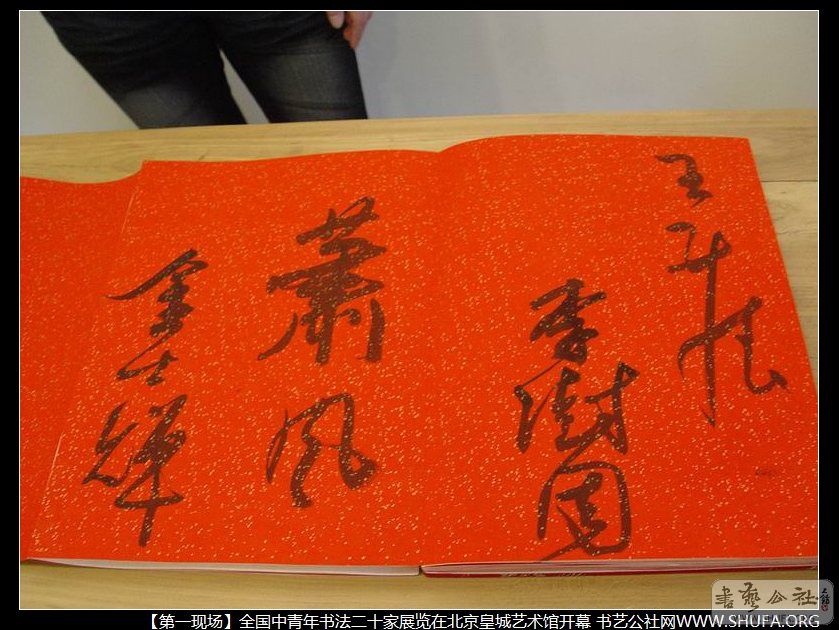 王
李
蕭風
金士輝
書藝公社
【第一现场】全国中青年书法二十家展览在北京皇城艺术馆开幕 书艺公社网WWW.SHUFA.ORG